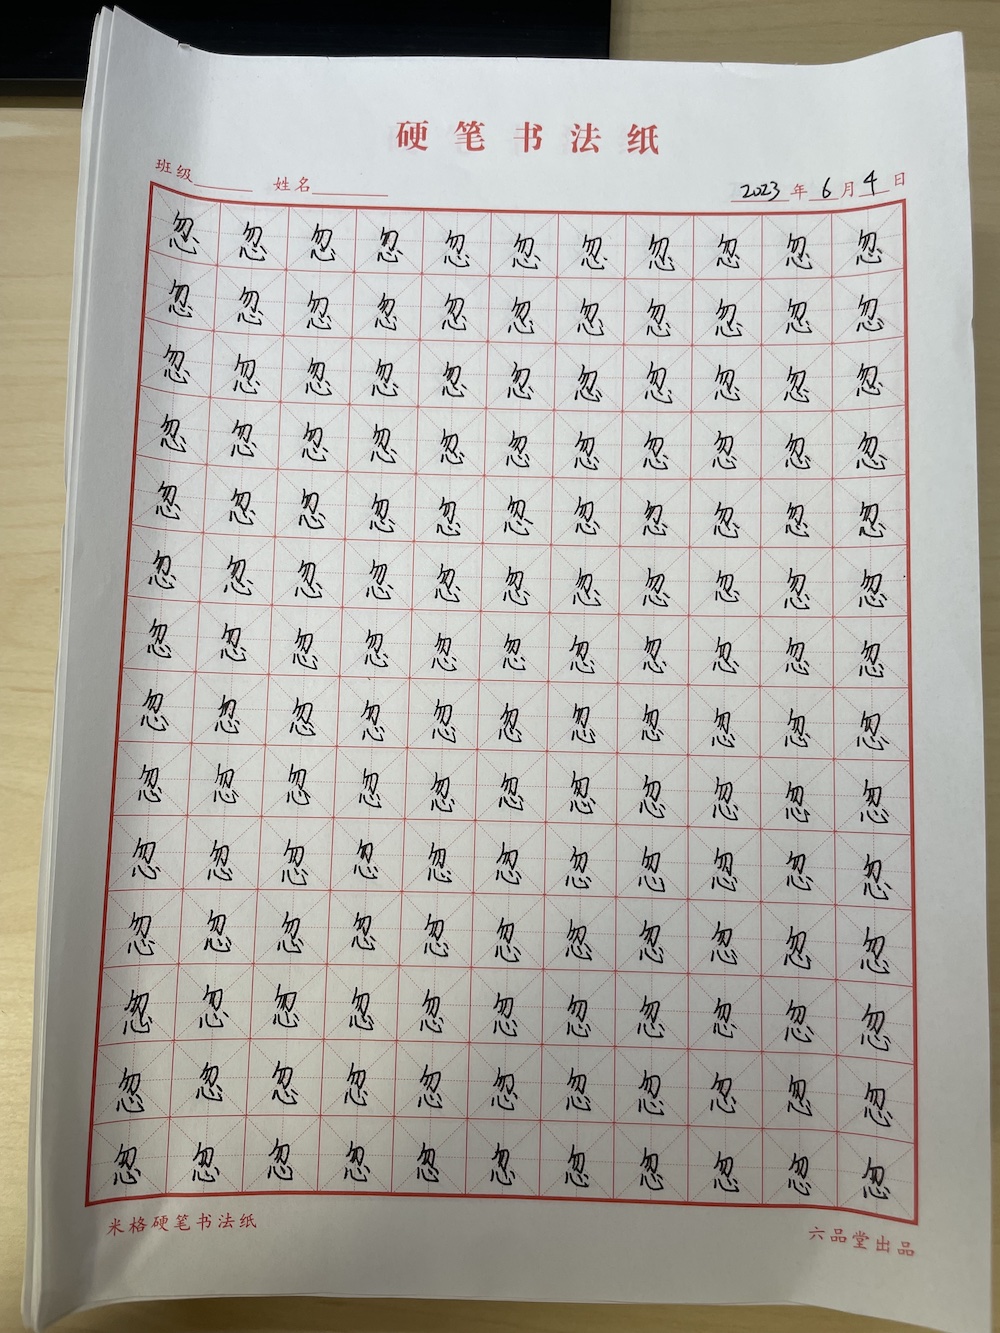 硬笔书法纸
班级 姓名 2023年6月4日
忽忽忽忽忽忽忽忽忽忽忽
忽忽忽忽忽忽忽忽忽忽忽
忽忽忽忽忽忽忽忽忽忽忽
忽忽忽忽忽忽忽忽忽忽忽
忽忽忽忽忽忽忽忽忽忽忽
忽忽忽忽忽忽忽忽忽忽忽
忽忽忽忽忽忽忽忽忽忽忽
忽忽忽忽忽忽忽忽忽忽忽
忽忽忽忽忽忽忽忽忽忽忽
忽忽忽忽忽忽忽忽忽忽忽
忽忽忽忽忽忽忽忽忽忽忽
忽忽忽忽忽忽忽忽忽忽忽
忽忽忽忽忽忽忽忽忽忽忽
忽忽忽忽忽忽忽忽忽忽忽
米格硬笔书法纸 六品堂出品